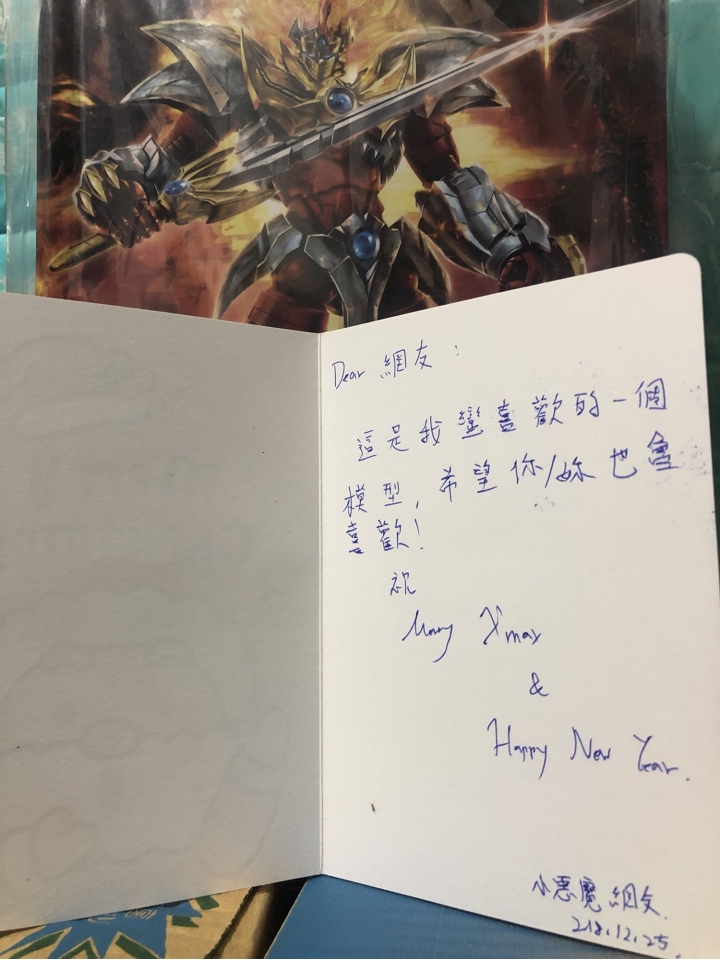 Dear 網友：
這是我蠻喜歡的一個
模型，希望你/妳也會
喜歡！
祝
Marry X'mas
&
Happy New Year.
小惡魔網友.
218.12.25.